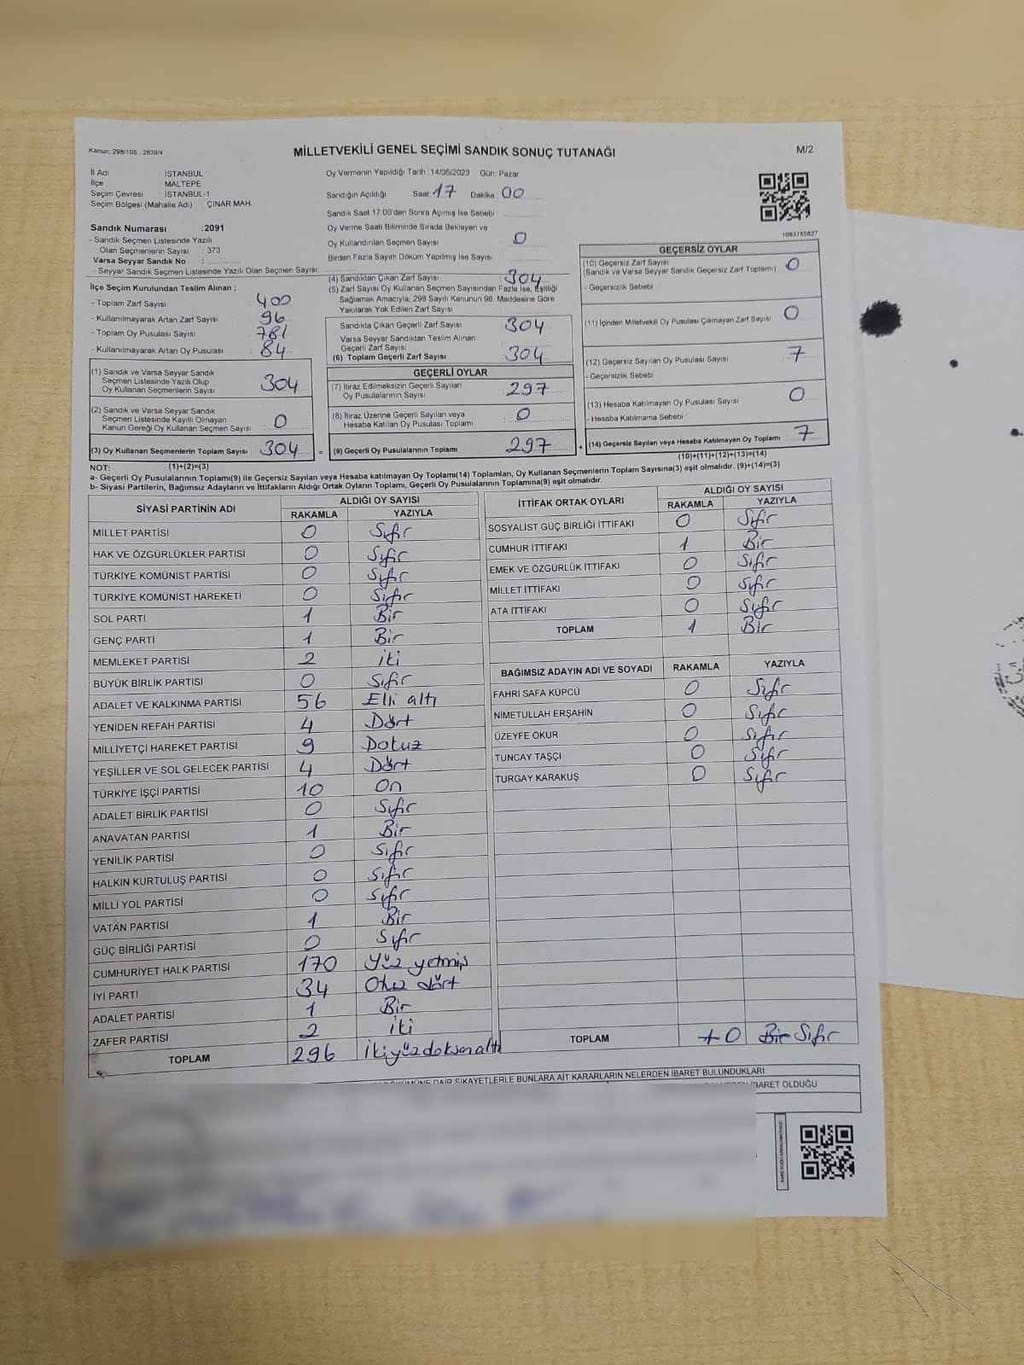 Kanun: 298/105, 2839/4
MİLLETVEKİLİ GENEL SEÇİMİ SANDIK SONUÇ TUTANAĞI
M/2
İl Adı İSTANBUL
İlçe MALTEPE
Seçim Çevresi İSTANBUL-1
Seçim Bölgesi (Mahalle Adı) : ÇINAR MAH.
Oy Vermenin Yapıldığı Tarih: 14/05/2023 Gün: Pazar
Sandığın Açıldığı Saat: 17 Dakika: 00
Sandık Saat 17:00'den Sonra Açılmış İse Sebebi
Sandık Numarası :2091
- Sandık Seçmen Listesinde Yazılı
Olan Seçmenlerin Sayısı : 373
Varsa Seyyar Sandık No :
- Seyyar Sandık Seçmen Listesinde Yazılı Olan Seçmen Sayısı:
Oy Verme Saati Bitiminde Sırada Bekleyen ve
Oy Kullandırılan Seçmen Sayısı 0
Birden Fazla Sayım Döküm Yapılmış İse Sayısı
1083785827
İlçe Seçim Kurulundan Teslim Alınan :
- Toplam Zarf Sayısı 400
- Kullanılmayarak Artan Zarf Sayısı 96
- Toplam Oy Pusulası Sayısı 781
- Kullanılmayarak Artan Oy Pusulası 84
(1) Sandık ve Varsa Seyyar Sandık
Seçmen Listesinde Yazılı Olup
Oy Kullanan Seçmenlerin Sayısı 304
(2) Sandık ve Varsa Seyyar Sandık
Seçmen Listesinde Kayıtlı Olmayan
Kanun Gereği Oy Kullanan Seçmen Sayısı 0
(3) Oy Kullanan Seçmenlerin Toplam Sayısı 304
(1)+(2)=(3)
(4) Sandıktan Çıkan Zarf Sayısı 304
(5) Zarf Sayısı Oy Kullanan Seçmen Sayısından Fazla İse, Eşitliği
Sağlamak Amacıyla, 298 Sayılı Kanunun 98. Maddesine Göre
Yakılarak Yok Edilen Zarf Sayısı
Sandıkta Çıkan Geçerli Zarf Sayısı 304
Varsa Seyyar Sandıktan Teslim Alınan
Geçerli Zarf Sayısı
(6) Toplam Geçerli Zarf Sayısı 304
GEÇERLİ OYLAR
(7) İtiraz Edilmeksizin Geçerli Sayılan
Oy Pusulalarının Sayısı 297
(8) İtiraz Üzerine Geçerli Sayılan veya
Hesaba Katılan Oy Pusulası Toplamı 0
= (9) Geçerli Oy Pusulalarının Toplamı 297
GEÇERSİZ OYLAR
(10) Geçersiz Zarf Sayısı 0
(Sandık ve Varsa Seyyar Sandık Geçersiz Zarf Toplamı)
- Geçersizlik Sebebi :
(11) İçinden Milletvekili Oy Pusulası Çıkmayan Zarf Sayısı 0
(12) Geçersiz Sayılan Oy Pusulası Sayısı 7
- Geçersizlik Sebebi :
(13) Hesaba Katılmayan Oy Pusulası Sayısı 0
- Hesaba Katılmama Sebebi :
+ (14) Geçersiz Sayılan veya Hesaba Katılmayan Oy Toplamı 7
(10)+(11)+(12)+(13)=(14)
NOT:
a- Geçerli Oy Pusulalarının Toplamı(9) ile Geçersiz Sayılan veya Hesaba katılmayan Oy Toplamı(14) Toplamları, Oy Kullanan Seçmenlerin Toplam Sayısına(3) eşit olmalıdır. (9)+(14)=(3)
b- Siyasi Partilerin, Bağımsız Adayların ve İttifakların Aldığı Ortak Oyların Toplamı, Geçerli Oy Pusulalarının Toplamına(9) eşit olmalıdır.
SİYASİ PARTİNİN ADI ALDIĞI OY SAYISI
RAKAMLA YAZIYLA
MİLLET PARTİSİ 0 Sıfır
HAK VE ÖZGÜRLÜKLER PARTİSİ 0 Sıfır
TÜRKİYE KOMÜNİST PARTİSİ 0 Sıfır
TÜRKİYE KOMÜNİST HAREKETİ 0 Sıfır
SOL PARTİ 1 Bir
GENÇ PARTİ 1 Bir
MEMLEKET PARTİSİ 2 iki
BÜYÜK BİRLİK PARTİSİ 0 Sıfır
ADALET VE KALKINMA PARTİSİ 56 Elli altı
YENİDEN REFAH PARTİSİ 4 Dört
MİLLİYETÇİ HAREKET PARTİSİ 9 Dokuz
YEŞİLLER VE SOL GELECEK PARTİSİ 4 Dört
TÜRKİYE İŞÇİ PARTİSİ 10 On
ADALET BİRLİK PARTİSİ 0 Sıfır
ANAVATAN PARTİSİ 1 Bir
YENİLİK PARTİSİ 0 Sıfır
HALKIN KURTULUŞ PARTİSİ 0 Sıfır
MİLLİ YOL PARTİSİ 0 Sıfır
VATAN PARTİSİ 1 Bir
GÜÇ BİRLİĞİ PARTİSİ 0 Sıfır
CUMHURİYET HALK PARTİSİ 170 Yüz yetmiş
İYİ PARTİ 34 Otuz dört
ADALET PARTİSİ 1 Bir
ZAFER PARTİSİ 2 iki
TOPLAM 296 ikiyüzdoksanaltı
İTTİFAK ORTAK OYLARI ALDIĞI OY SAYISI
RAKAMLA YAZIYLA
SOSYALİST GÜÇ BİRLİĞİ İTTİFAKI 0 Sıfır
CUMHUR İTTİFAKI 1 Bir
EMEK VE ÖZGÜRLÜK İTTİFAKI 0 Sıfır
MİLLET İTTİFAKI 0 Sıfır
ATA İTTİFAKI 0 Sıfır
TOPLAM 1 Bir
BAĞIMSIZ ADAYIN ADI VE SOYADI RAKAMLA YAZIYLA
FAHRİ SAFA KÜPCÜ 0 Sıfır
NİMETULLAH ERŞAHİN 0 Sıfır
ÜZEYFE OKUR 0 Sıfır
TUNCAY TAŞÇI 0 Sıfır
TURGAY KARAKUŞ 0 Sıfır
TOPLAM 0 Bir Sıfır
DAİR ŞİKAYETLERLE BUNLARA AİT KARARLARIN NELERDEN İBARET BULUNDUKLARI
İBARET OLDUĞU